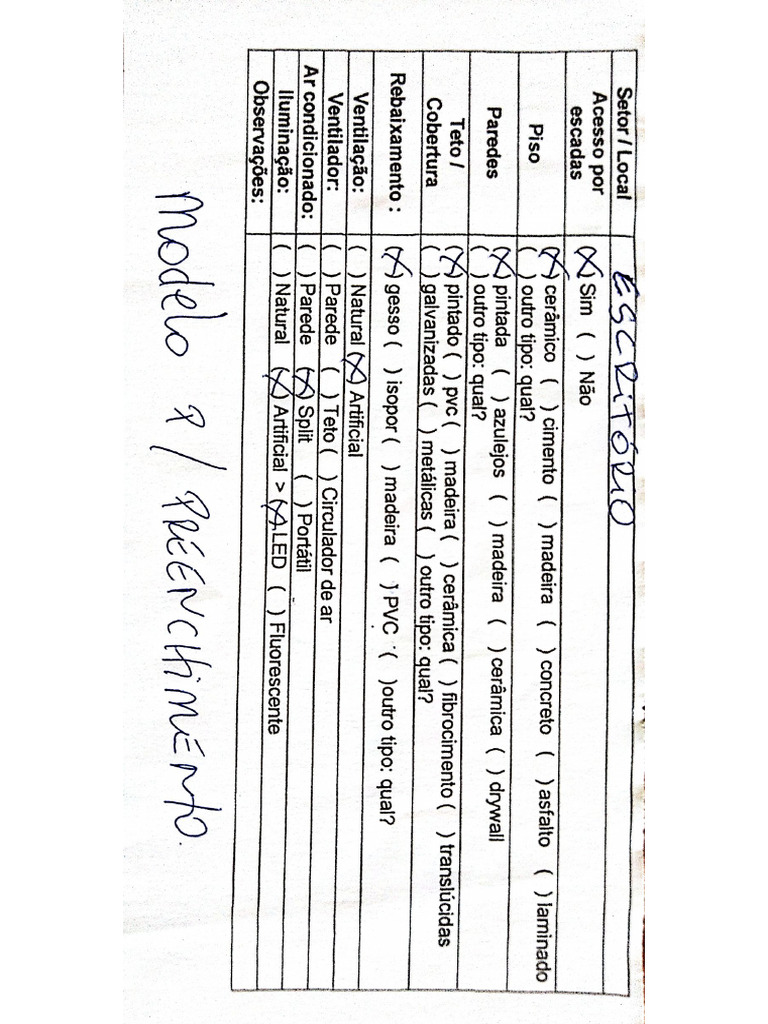 Setor / Local ESCRITÓRIO
Acesso por escadas (X) Sim ( ) Não
Piso (X) cerâmico ( ) cimento ( ) madeira ( ) concreto ( ) asfalto ( ) laminado
( ) outro tipo: qual?
Paredes (X) pintada ( ) azulejos ( ) madeira ( ) cerâmica ( ) drywall
( ) outro tipo: qual?
Teto / Cobertura (X) pintado ( ) pvc ( ) madeira ( ) cerâmica ( ) fibrocimento ( ) translúcidas
( ) galvanizadas ( ) metálicas ( ) outro tipo: qual?
Rebaixamento : (X) gesso ( ) isopor ( ) madeira ( ) PVC ( )outro tipo: qual?
Ventilação: ( ) Natural (X) Artificial
Ventilador: ( ) Parede ( ) Teto ( ) Circulador de ar
Ar condicionado: ( ) Parede (X) Split ( ) Portátil
Iluminação: ( ) Natural (X) Artificial > (X) LED ( ) Fluorescente
Observações:
Modelo P/ PREENCHIMENTO.